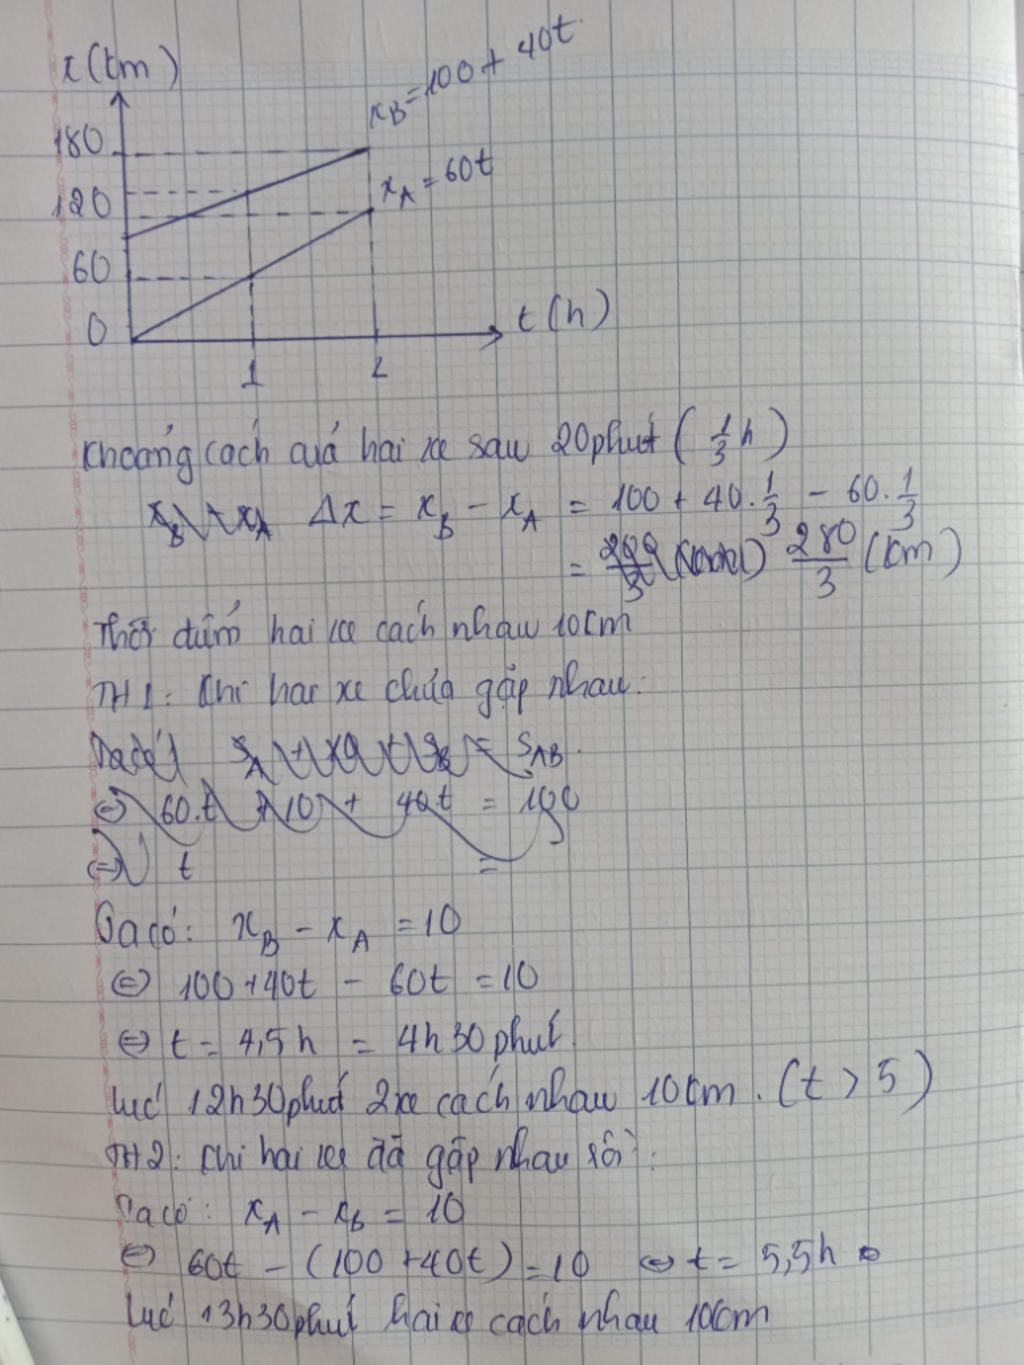 x(km)
x_B = 100 + 40t
180
x_A = 60t
120
60
0
t(h)
1
2
Khoảng cách cuả hai xe sau 20phút (1/3 h)
Δx = x_B - x_A = 100 + 40.1/3 - 60.1/3
= 280/3 (km)
Thời điểm hai xe cách nhau 10km
TH1: Khi hai xe chưa gặp nhau:
Ta có S_AB
⇔ 60.t 10 + 40t = 100
⇔ t =
Ta có: x_B - x_A = 10
⇔ 100+40t - 60t = 10
⇔ t = 4,5h = 4h30phút
Lúc 12h30phút 2xe cách nhau 10km. (t > 5)
TH2: Khi hai xe đã gặp nhau rồi:
Ta có: x_A - x_B = 10
⇔ 60t - (100+40t) = 10 ⇔ t = 5,5h
Lúc 13h30phút hai xe cách nhau 10km